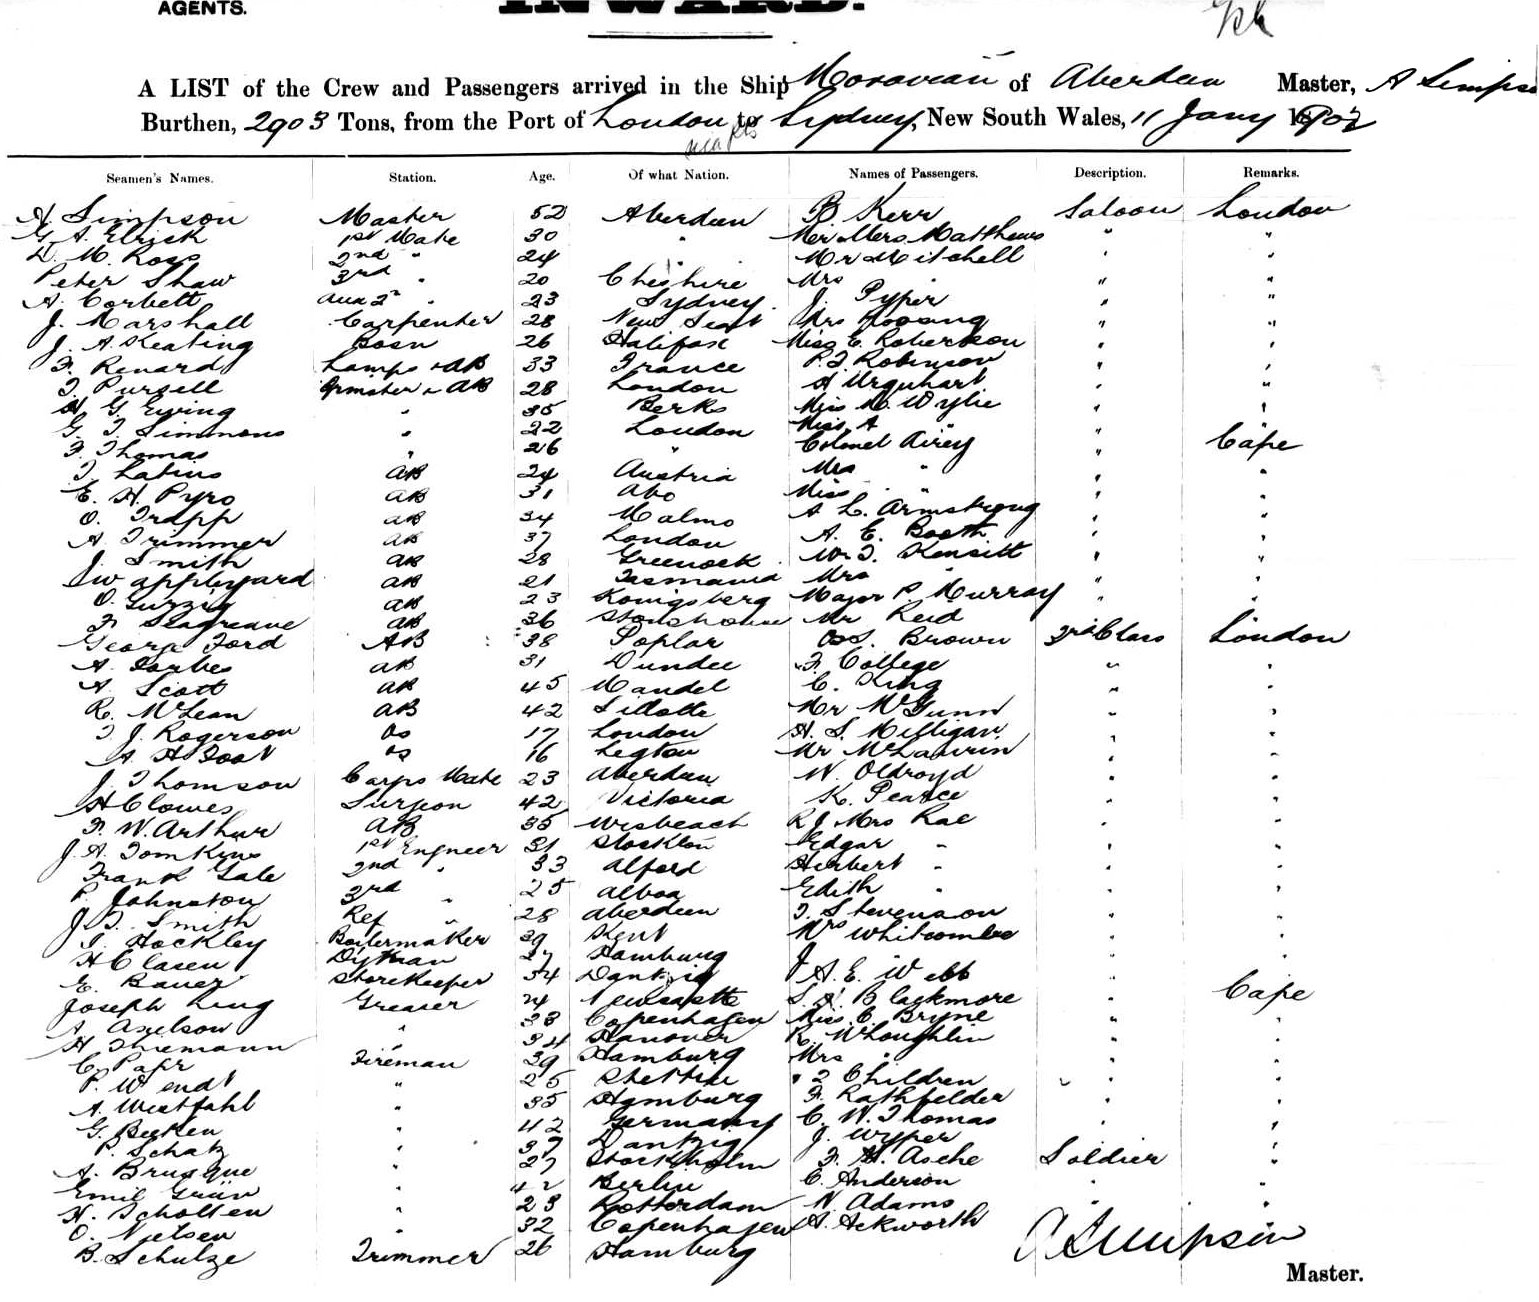 AGENTS. INWARD.
A LIST of the Crew and Passengers arrived in the Ship Moravian of Aberdeen Master, A Simpson
Burthen, 2903 Tons, from the Port of London to Sydney, New South Wales, 11 Jany 1902
Seamen's Names. Station. Age. Of what Nation. Names of Passengers. Description. Remarks.
A. Simpson Master 52 Aberdeen B Kerr Saloon London
G. A. Elrick 1st Mate 30 " Mr Mrs Matthews " "
D. M. Ross 2nd " 24 " Mr Mitchell " "
Peter Shaw 3rd " 20 Cheshire Mrs " " "
A. Corbett 23 Sydney J. Pyper " "
J. Marshall Carpenter 28 New Seat Mrs " "
J. A. Keating Bosn 26 Halifax Miss E. Robertson " "
F. Renard Lamps + AB 33 France P. T. Robinson " "
T. Pursell + AB 28 London A Urquhart " "
H. G. Ewing " 35 Berks Miss M. Wylie " "
G. T. Simmons " 22 London Miss A " "
F. Thomas " 26 " Colonel Airey " Cape
T. Latins AB 24 Austria Mrs " " "
E. H. Pyro AB 31 Abo Miss " " "
O. Trapp AB 34 Malmo A L. Armstrong " "
A. Trimmer AB 37 London A. E. Booth " "
J. Smith AB 28 Greenock Mr T. Hensitt " "
J W Appleyard AB 21 Tasmania Mrs " " "
O. Gurzig AB 23 Konigsberg Major P Murray " "
F. Seagreave AB 36 Stonehouse Mr Reid
Georg Ford AB 38 Poplar S. Brown 3rd Class London
A. Forbes AB 31 Dundee F. College " "
A. Scott AB 45 Mandel C. King " "
R. McLean AB 42 Mr McGunn " "
T J. Rogerson OS 17 London H. S. Milligan " "
A. H Foot OS 16 Legton Mr McLaurin " "
J. Thomson Carps Mate 23 Aberdeen W. Oldroyd " "
H Clowes Surgeon 42 Victoria K. Pearce " "
F. W. Arthur AB 35 Wisbeach R J Mrs Rae " "
J. A. Tomkins 1st Engineer 31 Stockton Edgar " " "
Frank Gale 2nd " 33 Alford Herbert " " "
P. Johnston 3rd " 25 Alloa Edith " " "
J. T. Smith Ref " 28 Aberdeen T. Stevenson " "
I. Hockley Boilermaker 39 Kent Mrs Whitcombe " "
H Clasen Dykman 27 Hamburg J " "
E. Bauer Storekeeper 34 Dantzig A. E. Webb
Joseph King Greaser 24 Newcastle S. A. Blackmore " Cape
A. Axelson " 33 Copenhagen Miss C Bryne " "
H Thiemann " 34 Hanover R. McLoughlin " "
C. Papr Fireman 39 Hamburg Mrs " " "
P. Wendt " 25 Stettin " 2 Children " "
A. Westfahl " 35 Hamburg F. Rathfelder " "
G. Becken " 42 Germany C. W. Thomas " "
P. Schatz " 37 Dantzig J. Wyper " "
A. Brusque " 27 Stockholm F. H. Asche Soldier "
Emil Grün " 42 Berlin C. Anderson " "
H. Scholten " 23 Rotterdam W. Adams " "
O. Nielsen " 32 Copenhagen A. Ackworth
B. Schulze Trimmer 26 Hamburg A Simpson
Master.